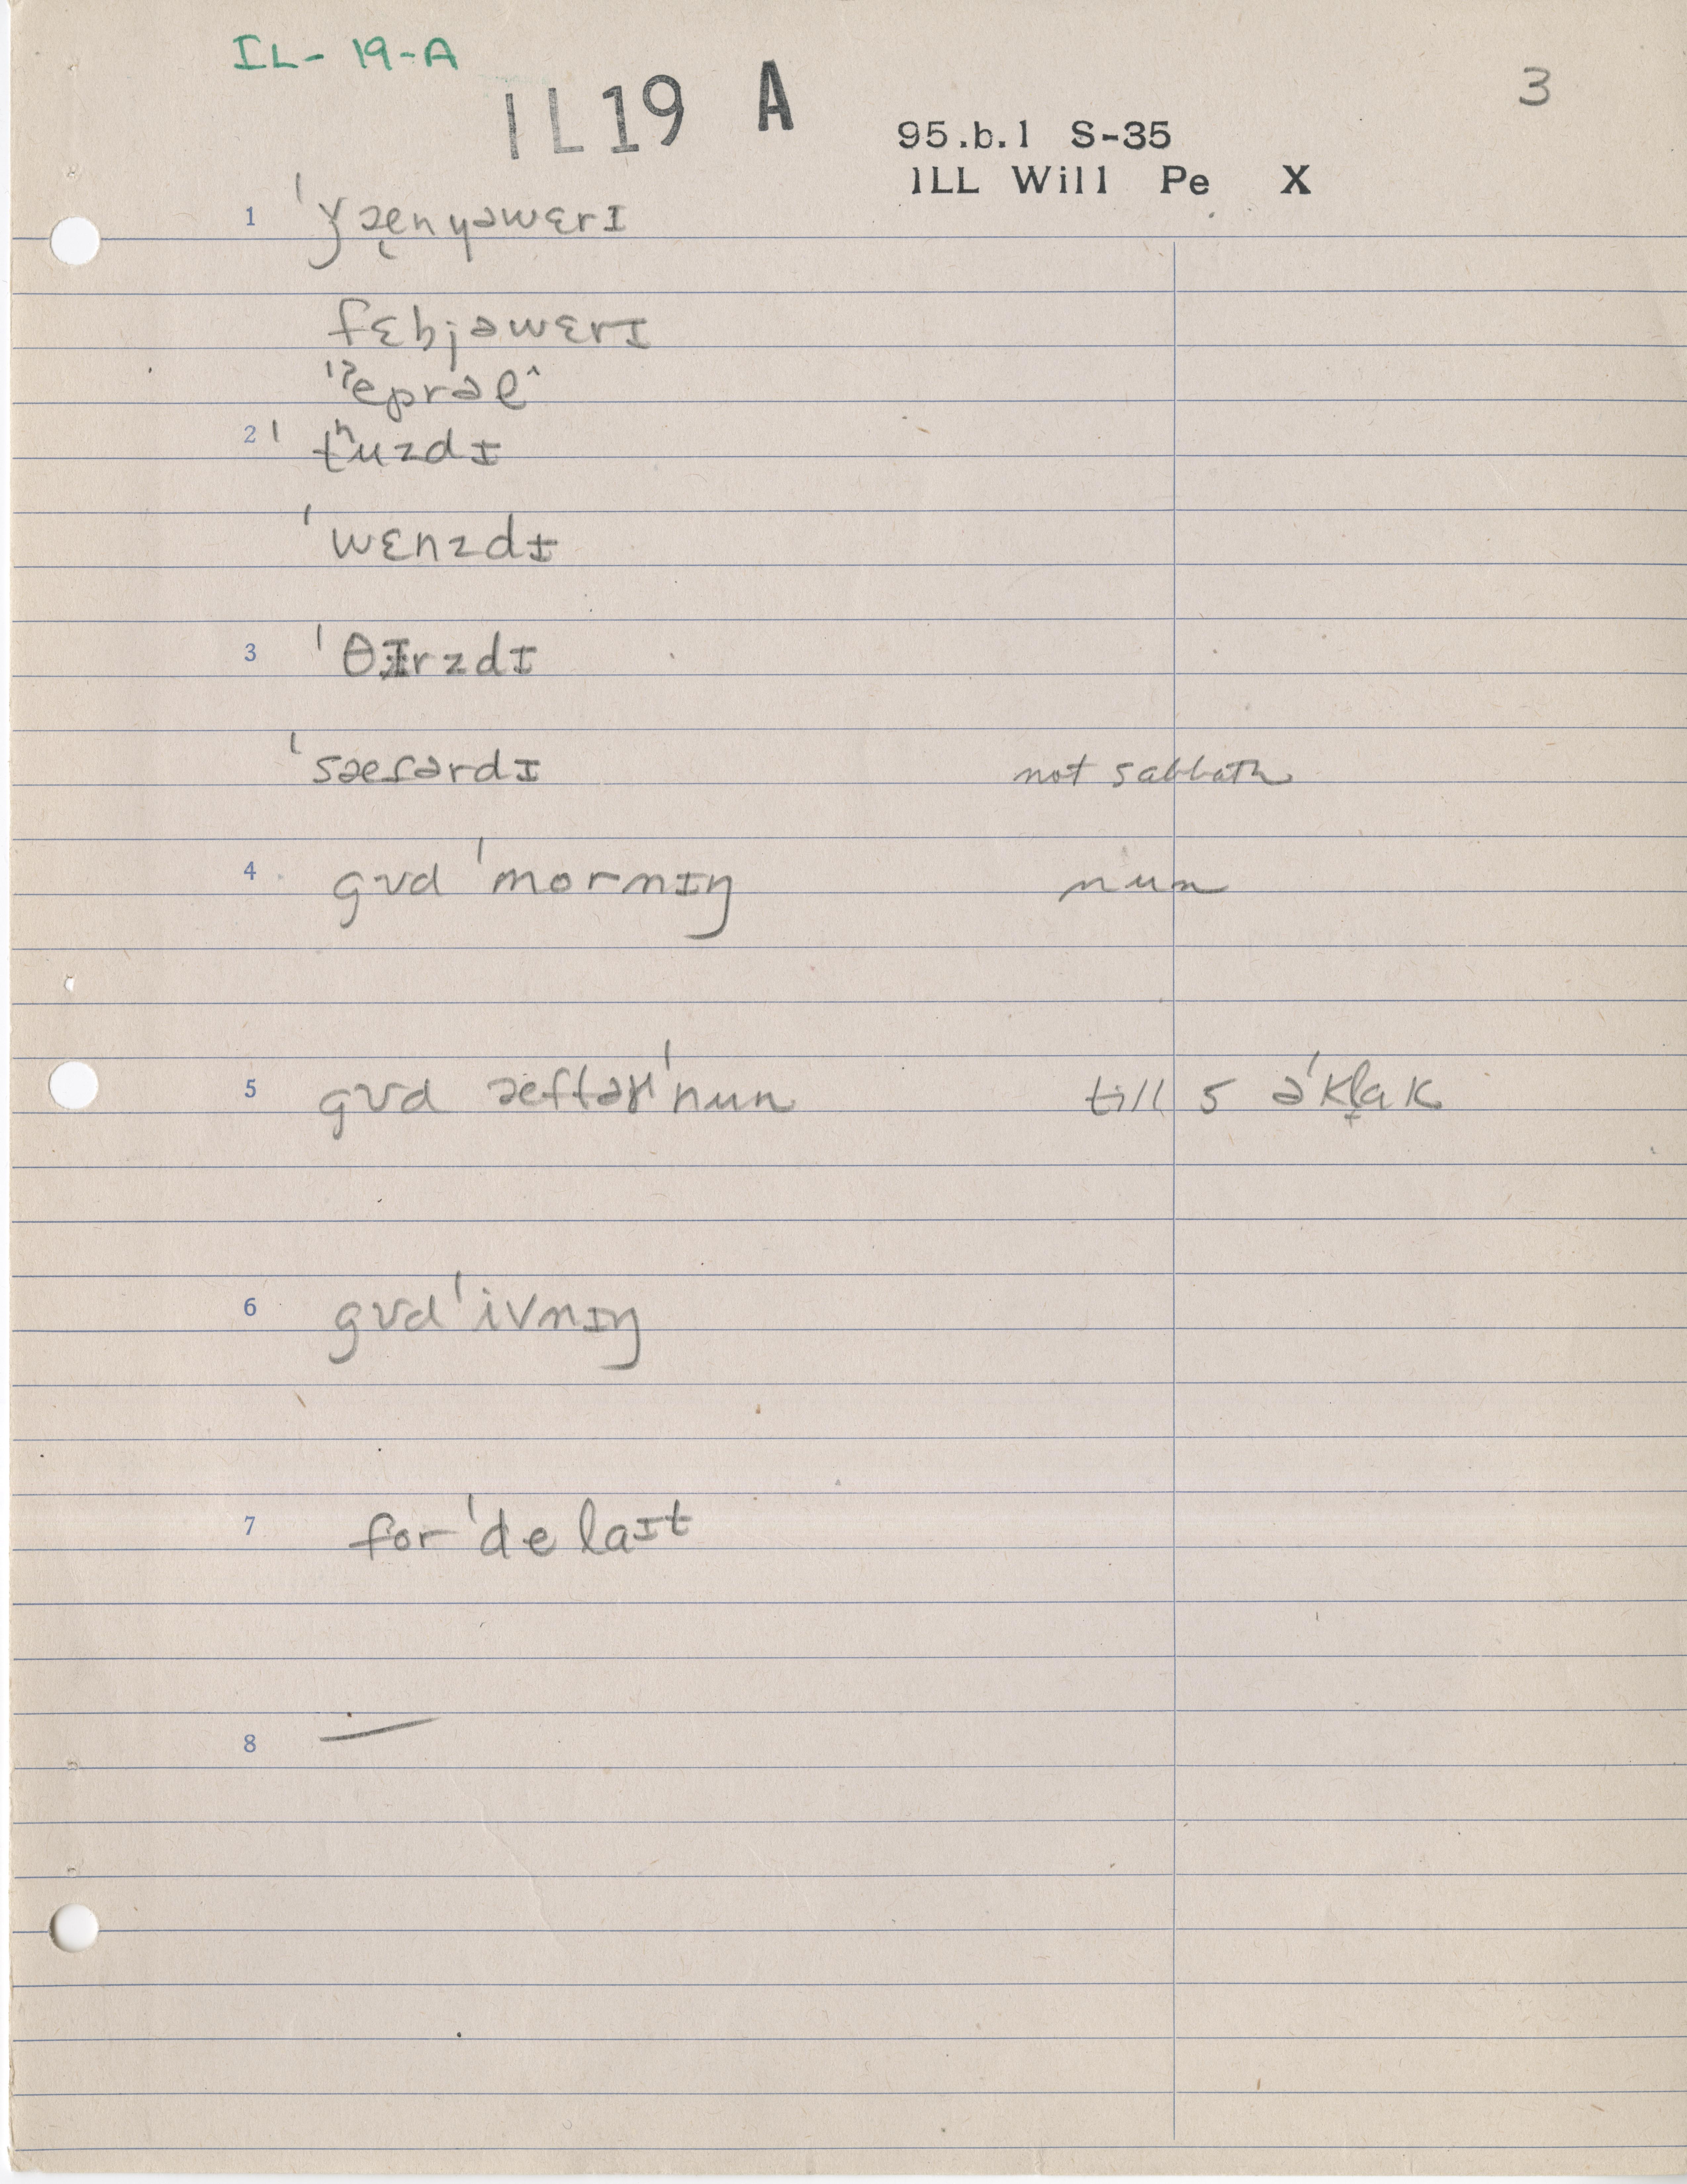 IL-19-A
IL19 A
3
95.b.1 S-35
ILL Will Pe X
1 ˈǰæn yəwɛrɪ
fɛbjəwɛrɪ
2 ˈtʰuzdɪ
ˈwɛnzdɪ
3 ˈθɪrzdɪ
ˈsæɾərdɪ not sabbath
4 gʊd ˈmornɪŋ nun
5 gʊd æftərˈnun till 5 əˈklak
6 gʊd ˈivnɪŋ
7 for ˈde laɪt
8 —